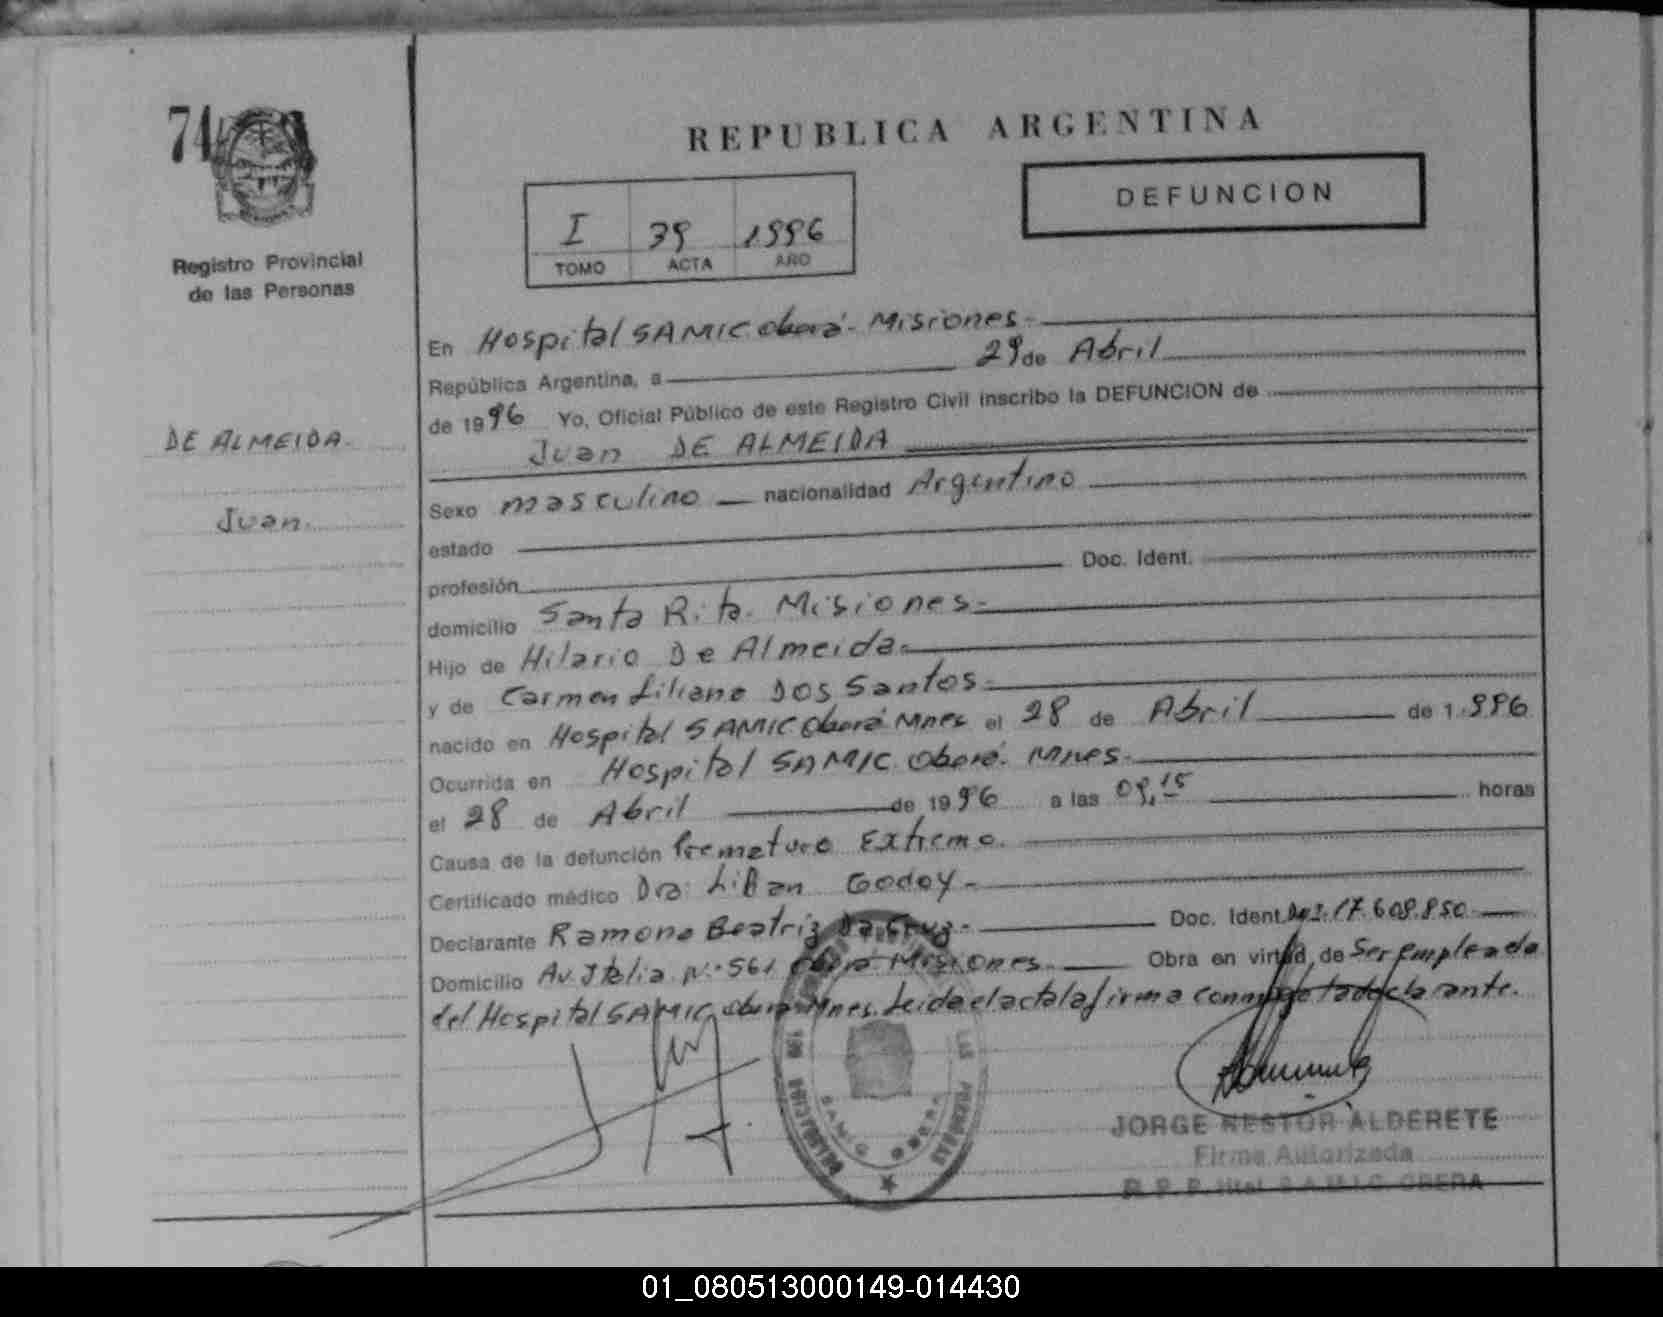 74
REPUBLICA ARGENTINA
DEFUNCION
I 39 1996
TOMO ACTA AÑO
Registro Provincial
de las Personas
DE ALMEIDA.
Juan.
En Hospital SAMIC Oberá - Misiones -
República Argentina, a 29 de Abril
de 1996 Yo, Oficial Público de este Registro Civil inscribo la DEFUNCION de
Juan DE ALMEIDA
Sexo masculino nacionalidad Argentino
estado
profesión Doc. Ident.
domicilio Santa Rita. Misiones -
Hijo de Hilario De Almeida -
y de Carmen Liliana Dos Santos -
nacido en Hospital SAMIC Oberá Mnes el 28 de Abril de 1.996
Ocurrida en Hospital SAMIC Oberá. Mnes -
el 28 de Abril de 1996 a las 09,15 horas
Causa de la defunción Prematuro Extremo.
Certificado médico Dra: Lilian Godoy -
Declarante Ramona Beatriz Da Cruz - Doc. Ident. 17.609.850
Domicilio Av. Italia Nº 561 Oberá Misiones Obra en virtud de Ser Empleada
del Hospital SAMIC Oberá Mnes. Leida el acta la firma conmigo la declarante.
REGISTRO PROVINCIAL DE LAS PERSONAS
SAMIC OBERA
JORGE NESTOR ALDERETE
Firma Autorizada
R. P. P. Htal. S.A.M.I.C. OBERA
01_080513000149-014430